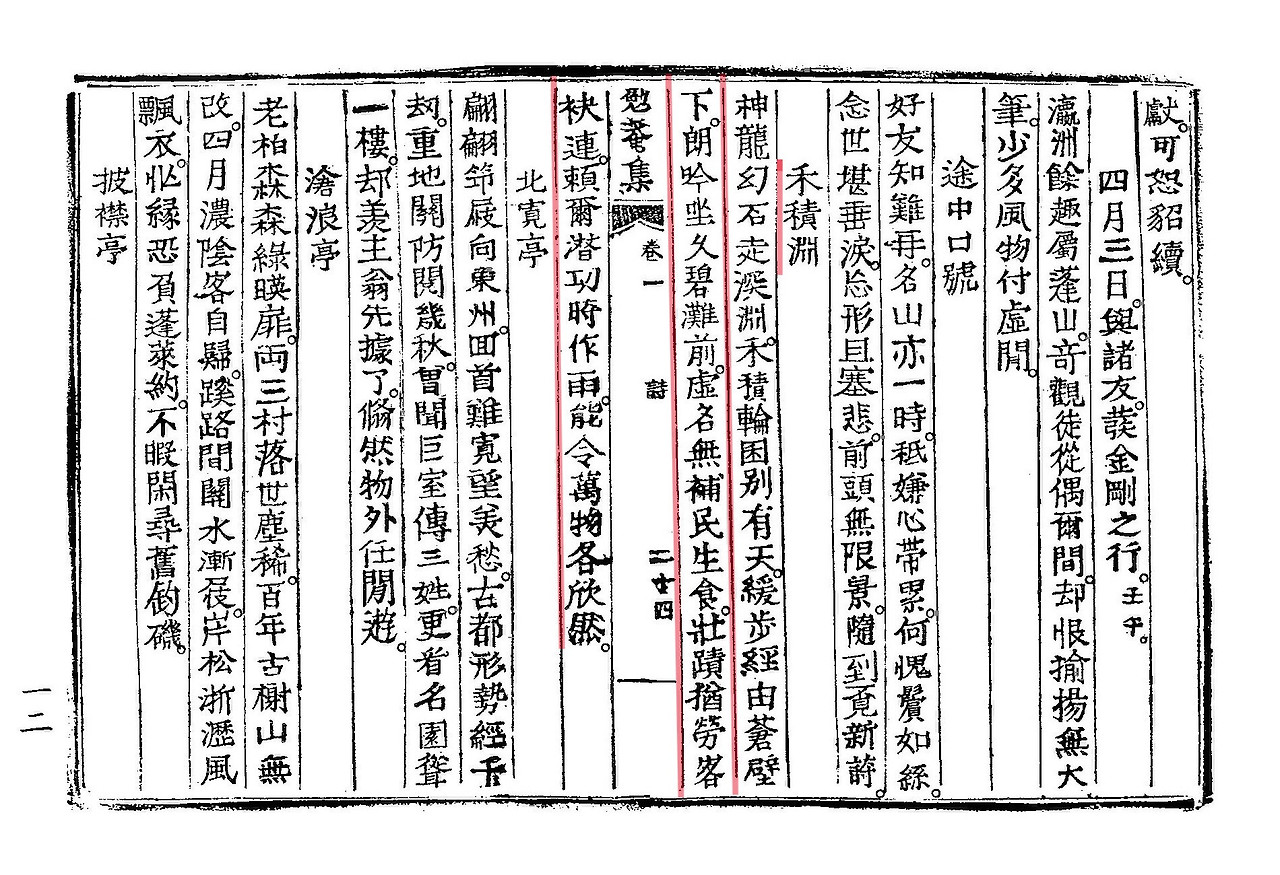 獻。可恕貂續。
四月三日。與諸友。發金剛之行。壬午。
瀛洲餘趣屬蓬山。奇觀徒從偶爾間。却恨揄揚無大
筆。少多風物付虛閒。
途中口號
好友知難再。名山亦一時。秪嫌心帶累。何愧鬢如絲。
念世堪垂淚。忘形且塞悲。前頭無限景。隨到覓新詩。
禾積淵
神龍幻石走深淵。禾積輪囷別有天。緩步經由蒼壁
下。朗吟坐久碧灘前。虛名無補民生食。壯蹟猶勞客
勉菴集 卷一 詩 二十四
袂連。賴爾潛功時作雨。能令萬物各欣然。
北寬亭
翩翩笻屐向東州。回首難寬望美愁。古都形勢經千
刼。重地關防閱幾秋。曾聞巨室傳三姓。更看名園聳
一樓。却羨主翁先據了。翛然物外任閒遊。
滄浪亭
老柏森森綠暎扉。兩三村落世塵稀。百年古榭山無
改。四月濃陰客自歸。蹊路間關水漸。岸松淅瀝風
飄衣。緣恐負蓬萊約。不暇閑尋舊釣磯。
披襟亭
一二